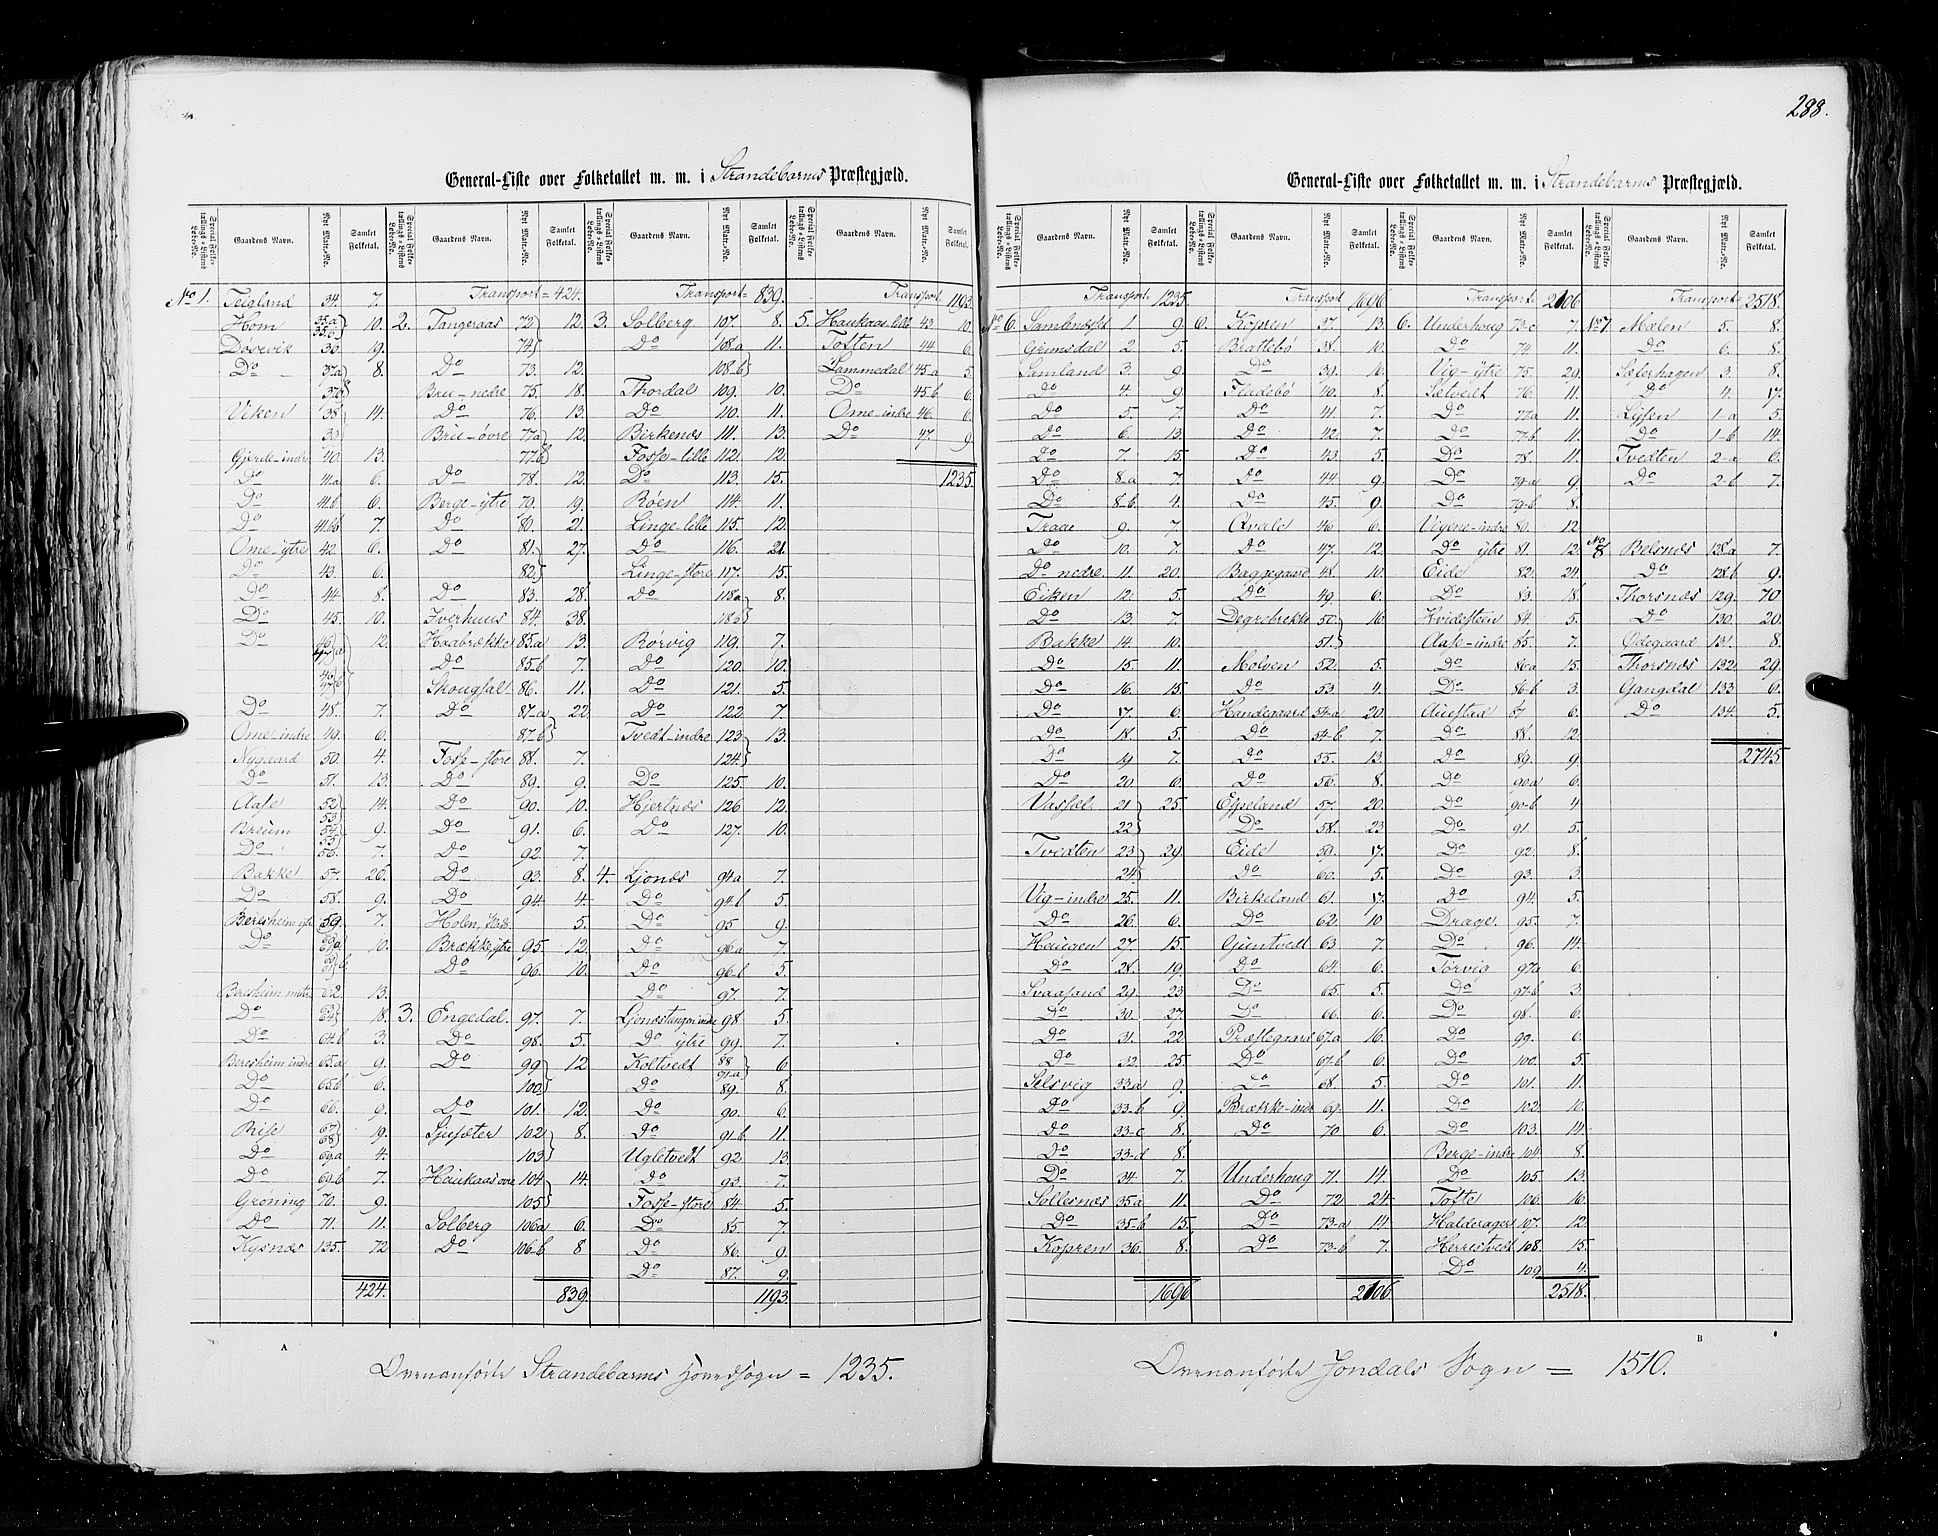 288.
General-Liste over Folketallet m. m. i Strandebarms Præstegjæld.
Special Folketællings-Listens Løbe-No. Gaardens Navn. Nyt Matr.-No. Samlet Folketal.
No 1. Teigland 34. 7.
Hom 35a 35b 10.
Døsevik 36. 19.
Do 37a 37b 8.
Viken 38 39 14.
Gjerde-indre 40. 13.
Do 41a 6.
Do 41b 6.
Do 41bb 7
Ome-ytre 42. 6.
Do 43. 6.
Do 44. 8.
Do 45. 10.
Do 46 47 a 46 47 b 12.
Do 48. 7.
Ome-indre 49. 6.
Nygaard 50. 4.
Do 51. 13.
Aase 52 53 14.
Breum 54 55 9.
Do 56. 7.
Bakke 57. 20.
Do 58. 9.
Beresheim ytre 59. 7.
Do 10.
Beresheim 62. 13.
Do 18.
Do 64b 3.
Beresheim indre 65a 9.
Do 65b 6.
Do 66. 9.
Rise 67 68 19.
Do 69a 4.
Do 69b 7.
Grøning 70. 9.
Do 71. 11.
Kysnæs 135. 72
424.
Transport = 424.
2. Tangeraas 72 74 12.
Do 73. 12.
Bru-nedre 75. 18.
Do 76. 13.
Bru-øvre 77a 77b 12.
Do 78. 12.
Berge-ytre 79. 19.
Do 80. 21.
Do 81. 82. 27.
Do 83. 28.
Iverhuus 84. 38.
Haabrække 85a 13.
Do 85b 7.
Skougsal 86. 11.
Do 87-a 87-b 22
Fosse-store 88. 7.
Do 89. 9.
Do 90. 10.
Do 91. 6.
Do 92. 7.
Do 93. 8.
Do 94. 4.
Holen, 5.
Brække ytre 95. 12.
Do 96. 10.
3. Engedal 97. 7.
Do 98. 5.
Do 99 100 12
Do 101. 12.
Sjusæter 102 103 8.
Haukaas øvre 104 105 14.
Solberg 106a 6.
Do 106-b 8
839.
Transport = 839.
3. Solberg 107. 8.
Do 108a 108-b 11.
Thordal 109. 10.
Do 110. 11.
Birkenæs 111. 13.
Fosse-lille 112. 12.
Do 113. 15.
Røen 114. 11.
Linge-lille 115. 12.
Do 116. 21.
Linge-store 117. 15.
Do 118a 118b 8.
Rørvig 119. 7.
Do 120. 10.
Do 121. 5.
Do 122. 7.
Tvedt-indre 123. 124. 13.
Do 125. 10.
Hjertnæs 126. 12.
Do 127. 10.
4. Ljonæs 94a 7.
Do 94b 5.
Do 95 9.
Do 96a 7.
Do 96-b 5.
Do 97. 7.
Ljonæstangen indre 98 5.
Do ytre 99. 7.
Koltvedt 88 91-a 6
Do 89. 8.
Do 90. 6.
Do 91b 11.
Ugletvedt 92. 13.
Do 93. 7.
Fosse-store 84 5.
Do 85. 7.
Do 86. 9.
Do 87. 9.
1193.
Transport. 1193.
5. Haukaas lille 43. 10.
Tosten 44. 6.
Sammedal 45-a 5.
Do 45-b 6.
Ome-indre 46. 6.
Do 47. 9.
1235.
A
Ovenanførte Strandebarms Hovedsogn = 1235.
General-Liste over Folketallet m. m. i Strandebarms Præstegjæld.
Special Folketællings-Listens Løbe-No. Gaardens Navn. Nyt Matr.-No. Samlet Folketal.
Transport 1235.
No 6. 1. 9.
Grimsdal 2. 5.
Samland 3. 9.
Do 4. 9.
Do 5. 7.
Do 6. 13.
Do 7. 15.
Do 8-a 7.
Do 8-b 4.
Traae 9. 7.
Do 10. 7.
Do nedre. 11. 20.
Eiken 12. 5.
Do 13. 7.
Bakke 14. 10.
Do 15. 11.
Do 16. 15.
Do 17. 6.
Do 18. 5.
Do 19 7.
Do 20 6.
Vassel 21 22 25
Tvedten 23. 24. 29.
Vig-indre 25. 11.
Do 26. 6.
Haugen 27. 15.
Do 28. 19.
Svaasand 29. 23
Do 30. 27
Do 31. 22
Do 32. 25.
Selsvig 33a 9.
Do 33-b 9.
Do 33-c 8.
Do 33-d 8.
Do 34. 7.
Sollesnæs 35a 11.
Do 35-b 15.
Kopren 36. 8.
1696
Transport 1696
6. Kopren 37. 13.
Brattebø 38. 10.
Do 39. 10.
Fladebø 40. 8.
Do 41. 7.
Do 42. 7.
Do 43 5.
Do 44 9.
Do 45. 9
Qvale 46 6.
Do 47. 12.
Baggegaard 48. 10.
Do 49. 6.
Degrebrekke 50. 51. 16.
Molven 52. 5.
Do 53 4.
Handegaard 54-a 20.
Do 54-b 7.
Do 55. 13.
Do 56. 8.
Espeland 57. 20.
Do 58. 23
Eide 59. 17.
Do 60. 5.
Birkeland 61. 17.
Do 62 10
Gjuntvedt 63 7.
Do 64. 6.
Do 65. 5.
Do 66. 6.
Præstegaard 67a 16.
Do 67-b 6.
Do 68 5.
Brække-indre 69. 11.
Do 70 6.
Underhoug 71. 14.
Do 72 24.
Do 73-a 14.
Do 73-b 7.
2106.
Transport 2106
6. Underhoug 73-c 7.
Do 74. 11.
Vig-ytre 75. 29.
Sætveit 76. 11.
Do 77a 11.
Do 77-b 11.
Do 78. 11.
Do 79-a 9.
Do 79-b 8.
Vigene-indre 80. 12
Do ytre 81. 12.
Eide 82. 24.
Do 83. 18.
Hvidesteen 84. 5.
Aase-indre 85. 7.
Do 86a 15.
Do 86-b 3.
Auestad 87 6.
Do 88. 12.
Do 89. 9
Do 90a 6.
Do 90-b 4
Do 91. 5.
Do 92. 8.
Do 93. 3.
Do 94. 5.
Drage. 95. 7.
Do 96. 14.
Torvig 97a 6.
Do 97-b 3.
Do 98. 6.
Do 99. 6.
Do 100. 5.
Do 101. 11.
Do 102 10.
Do 103. 14.
Berge-indre 104. 8.
Do 105. 13.
Toste 106. 16.
Halderager 107. 12.
Herrestvedt 108. 15.
Do 109 4.
2518.
Transport 2518.
No 7. Mælen 5. 8.
Do 6. 8.
Selerhagen 3. 8.
Do 4. 17.
Lysen 1-a 5.
Do 1-b 14.
Tvedten 2-a 6.
Do 2-b 7.
No 8 Belsnæs 128a 7.
Do 128b 9.
Thorsnæs 129. 70
Do 130. 20.
Ødegaard 131. 8.
Thorsnæs 132. 29.
Gangdal 133 6.
Do 134. 5.
2745
B
Ovenanførte Jondals Sogn = 1510.